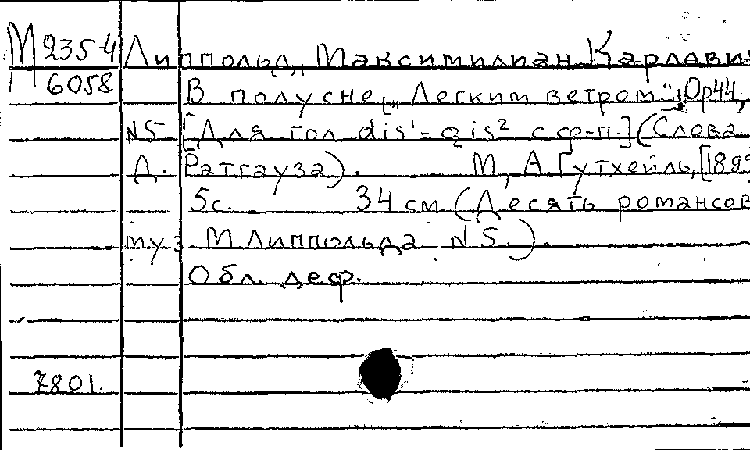 М 235-4 Липпольд, Максимилиан Карлови
6058 В полусне [„Легким ветром"], Ор 44,
N5 [Для гол. dis¹-gis² с ф-п.] (Слова
Д. Ратгауза). М., А. Гутхейль, [189
5с. 34 см (Десять романсов
муз. М. Липпольда N 5.).
Обл. деф.
7801.